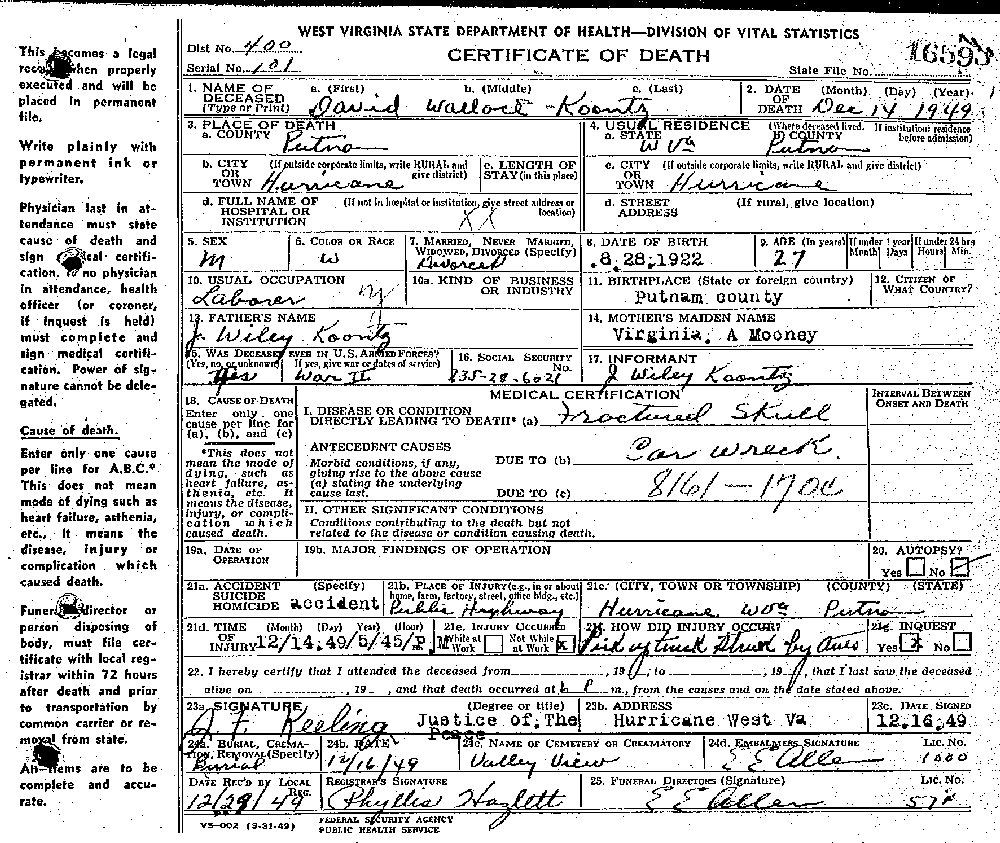 WEST VIRGINIA STATE DEPARTMENT OF HEALTH—DIVISION OF VITAL STATISTICS
Dist No. 400
CERTIFICATE OF DEATH
16593
Serial No. 101
State File No.
1. NAME OF DECEASED (Type or Print) a. (First) b. (Middle) c. (Last)
David Wallock Koontz
2. DATE OF DEATH (Month) (Day) (Year)
Dec 14 1949
3. PLACE OF DEATH
a. COUNTY Putnam
4. USUAL RESIDENCE (Where deceased lived. If institution: residence before admission)
a. STATE W Va b. COUNTY Putnam
b. CITY OR TOWN (If outside corporate limits, write RURAL and give district) Hurricane
c. LENGTH OF STAY (in this place)
c. CITY OR TOWN (If outside corporate limits, write RURAL and give district) Hurricane
d. FULL NAME OF HOSPITAL OR INSTITUTION (If not in hospital or institution, give street address or location) XX
d. STREET ADDRESS (If rural, give location)
5. SEX M
6. COLOR OR RACE W
7. MARRIED, NEVER MARRIED, WIDOWED, DIVORCED (Specify) Divorced
8. DATE OF BIRTH 8.28.1922
9. AGE (In years) 27
If under 1 year Months Days
If under 24 hrs Hours Min.
10. USUAL OCCUPATION Laborer
10a. KIND OF BUSINESS OR INDUSTRY
11. BIRTHPLACE (State or foreign country) Putnam county
12. CITIZEN OF WHAT COUNTRY?
13. FATHER'S NAME J. Wiley Koontz
14. MOTHER'S MAIDEN NAME Virginia. A Mooney
15. WAS DECEASED EVER IN U.S. ARMED FORCES?
(Yes, no, or unknown) Yes (If yes, give war or dates of service) War II
16. SOCIAL SECURITY No. 235-28-6021
17. INFORMANT J Wiley Koontz
18. CAUSE OF DEATH
Enter only one cause per line for (a), (b), and (c)
*This does not mean the mode of dying, such as heart failure, asthenia, etc. It means the disease, injury, or complication which caused death.
MEDICAL CERTIFICATION
INTERVAL BETWEEN ONSET AND DEATH
I. DISEASE OR CONDITION DIRECTLY LEADING TO DEATH* (a) Fractured Skull
ANTECEDENT CAUSES
Morbid conditions, if any, giving rise to the above cause (a) stating the underlying cause last.
DUE TO (b) Car wreck.
DUE TO (c) 8161-170c
II. OTHER SIGNIFICANT CONDITIONS
Conditions contributing to the death but not related to the disease or condition causing death.
19a. DATE OF OPERATION
19b. MAJOR FINDINGS OF OPERATION
20. AUTOPSY?
Yes No
21a. ACCIDENT SUICIDE HOMICIDE (Specify) accident
21b. PLACE OF INJURY (e.g., in or about home, farm, factory, street, office bldg., etc.) Public Highway
21c. (CITY, TOWN OR TOWNSHIP) (COUNTY) (STATE)
Hurricane WVa Putnam
21d. TIME OF INJURY (Month) (Day) (Year) (Hour) 12/14.49/5/45/P. M
21e. INJURY OCCURRED While at Work Not While at Work X
21f. HOW DID INJURY OCCUR? Pick up truck struck by
21g. INQUEST
Yes X No
22. I hereby certify that I attended the deceased from , 19 , to , 19 , that I last saw the deceased
alive on , 19 , and that death occurred at 6 P m., from the causes and on the date stated above.
23a. SIGNATURE J F Keeling
(Degree or title) Justice of The Peace
23b. ADDRESS Hurricane West Va
23c. DATE SIGNED 12.16.49
24a. BURIAL, CREMATION, REMOVAL (Specify) Burial
24b. DATE 12/16/49
24c. NAME OF CEMETERY OR CREMATORY Valley View
24d. EMBALMERS SIGNATURE E E Allen
LIC. NO.
DATE REC'D BY LOCAL REG. 12/29/49
REGISTRAR'S SIGNATURE Phyllis Hazlett
25. FUNERAL DIRECTORS (Signature) E E Allen
LIC. NO.
VS-002 (3-31-49)
FEDERAL SECURITY AGENCY
PUBLIC HEALTH SERVICE
This becomes a legal
record when properly
executed and will be
placed in permanent
file.
Write plainly with
permanent ink or
typewriter.
Physician last in at-
tendance must state
cause of death and
sign medical certifi-
cation. If no physician
in attendance, health
officer (or coroner,
if inquest is held)
must complete and
sign medical certifi-
cation. Power of sig-
nature cannot be dele-
gated.
Cause of death.
Enter only one cause
per line for A.B.C.*
This does not mean
mode of dying such as
heart failure, asthenia,
etc., It means the
disease, injury or
complication which
caused death.
Funeral director or
person disposing of
body, must file cer-
tificate with local reg-
istrar within 72 hours
after death and prior
to transportation by
common carrier or re-
moval from state.
All items are to be
complete and accu-
rate.